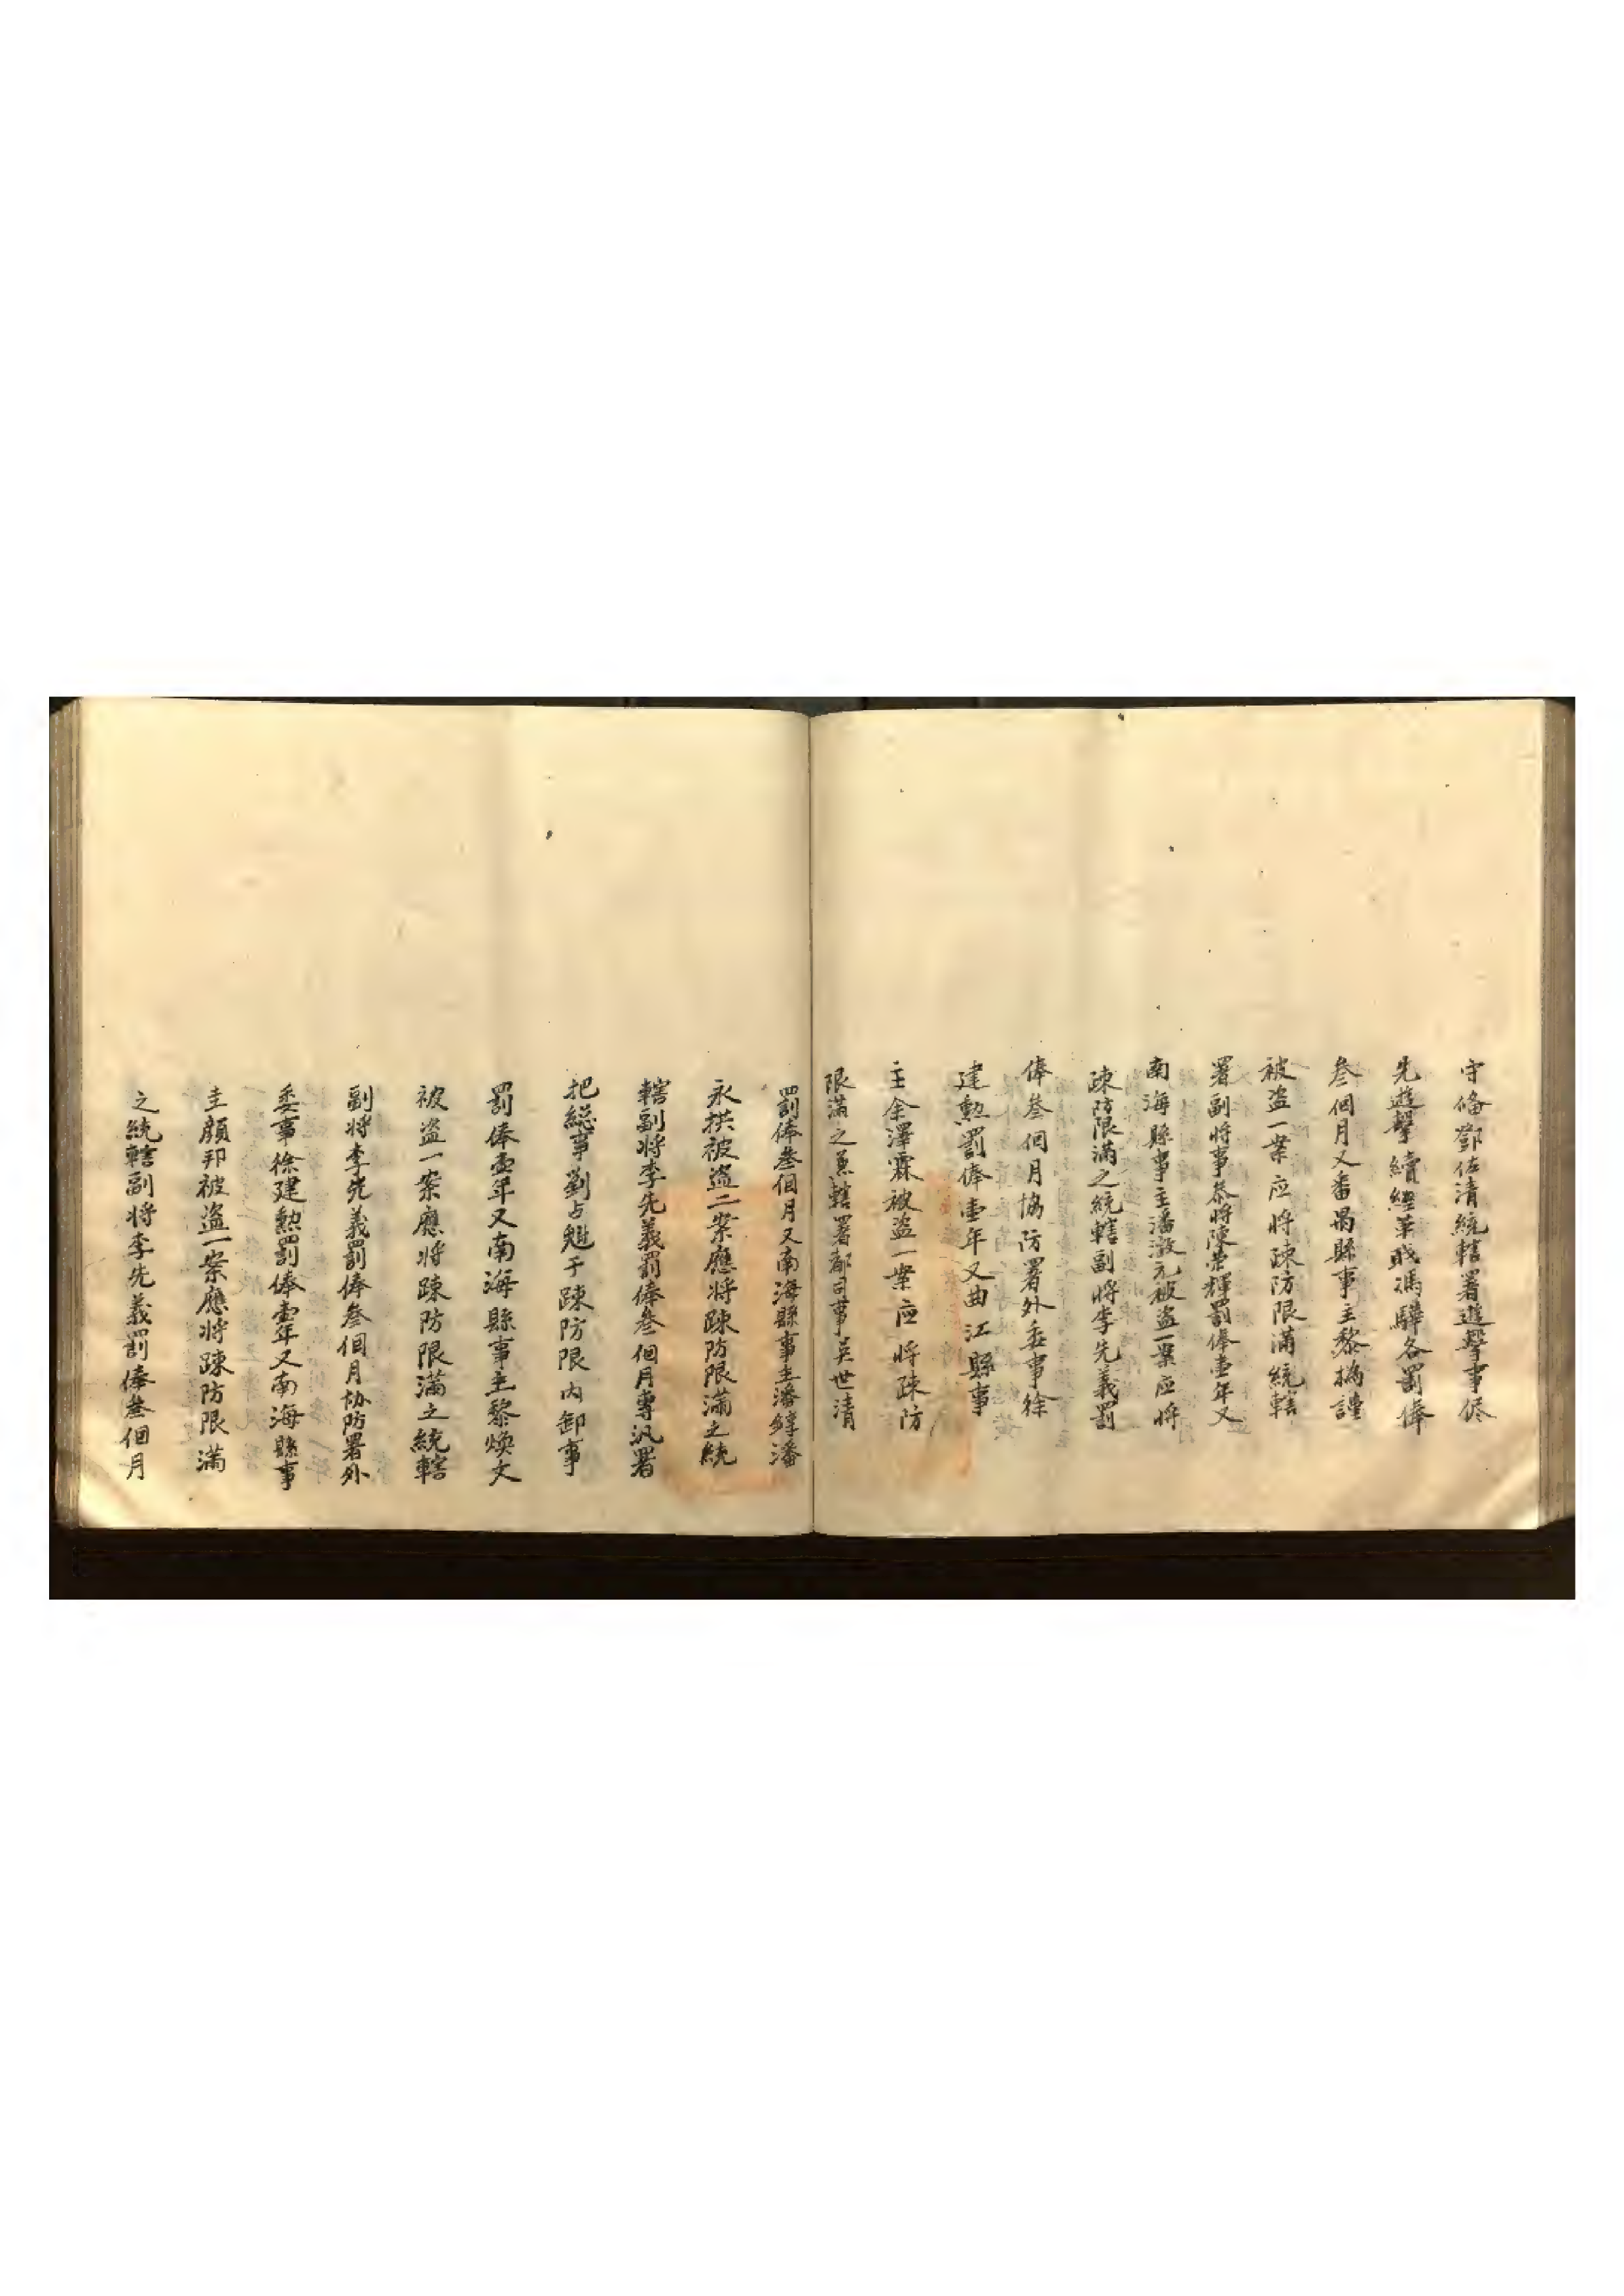 守俻鄧佐清統轄署遊擊事侭
先遊擊續經革戝馮驊各罰俸
叁個月又番禺縣事主黎㧑謹
被盗一案应將疎防限滿統轄
署副將事叅將陳崇輝罰俸壹年又
南海縣事主潘澂元被盗一案应將
疎防限滿之統轄副將李先義罰
俸叁個月協防署外委事徐
建勲罰俸壹年又曲江縣事
主余澤霖被盗一案应將疎防
限滿之兼轄署都司事吴世清
罰俸叁個月又南海縣事主潘錞潘
永拱被盗二案應將踈防限滿之統
轄副将李先義罰俸叁個月專汛署
把総事劉占魁于踈防限内卸事
罰俸壹年又南海縣事主黎煥文
被盗一案應將踈防限滿之統轄
副將李先義罰俸叁個月协防署外
委事徐建勲罰俸壹年又南海縣事
主顏邦被盗一案應將踈防限滿
之統轄副將李先義罰俸叁個月